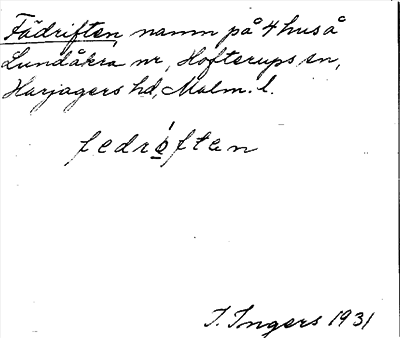 Fädriften, namn på 4 hus å
Lundåkra nr, Hofterups sn,
Harjagers hd, Malm. l.
fedròften
I. Ingers 1931